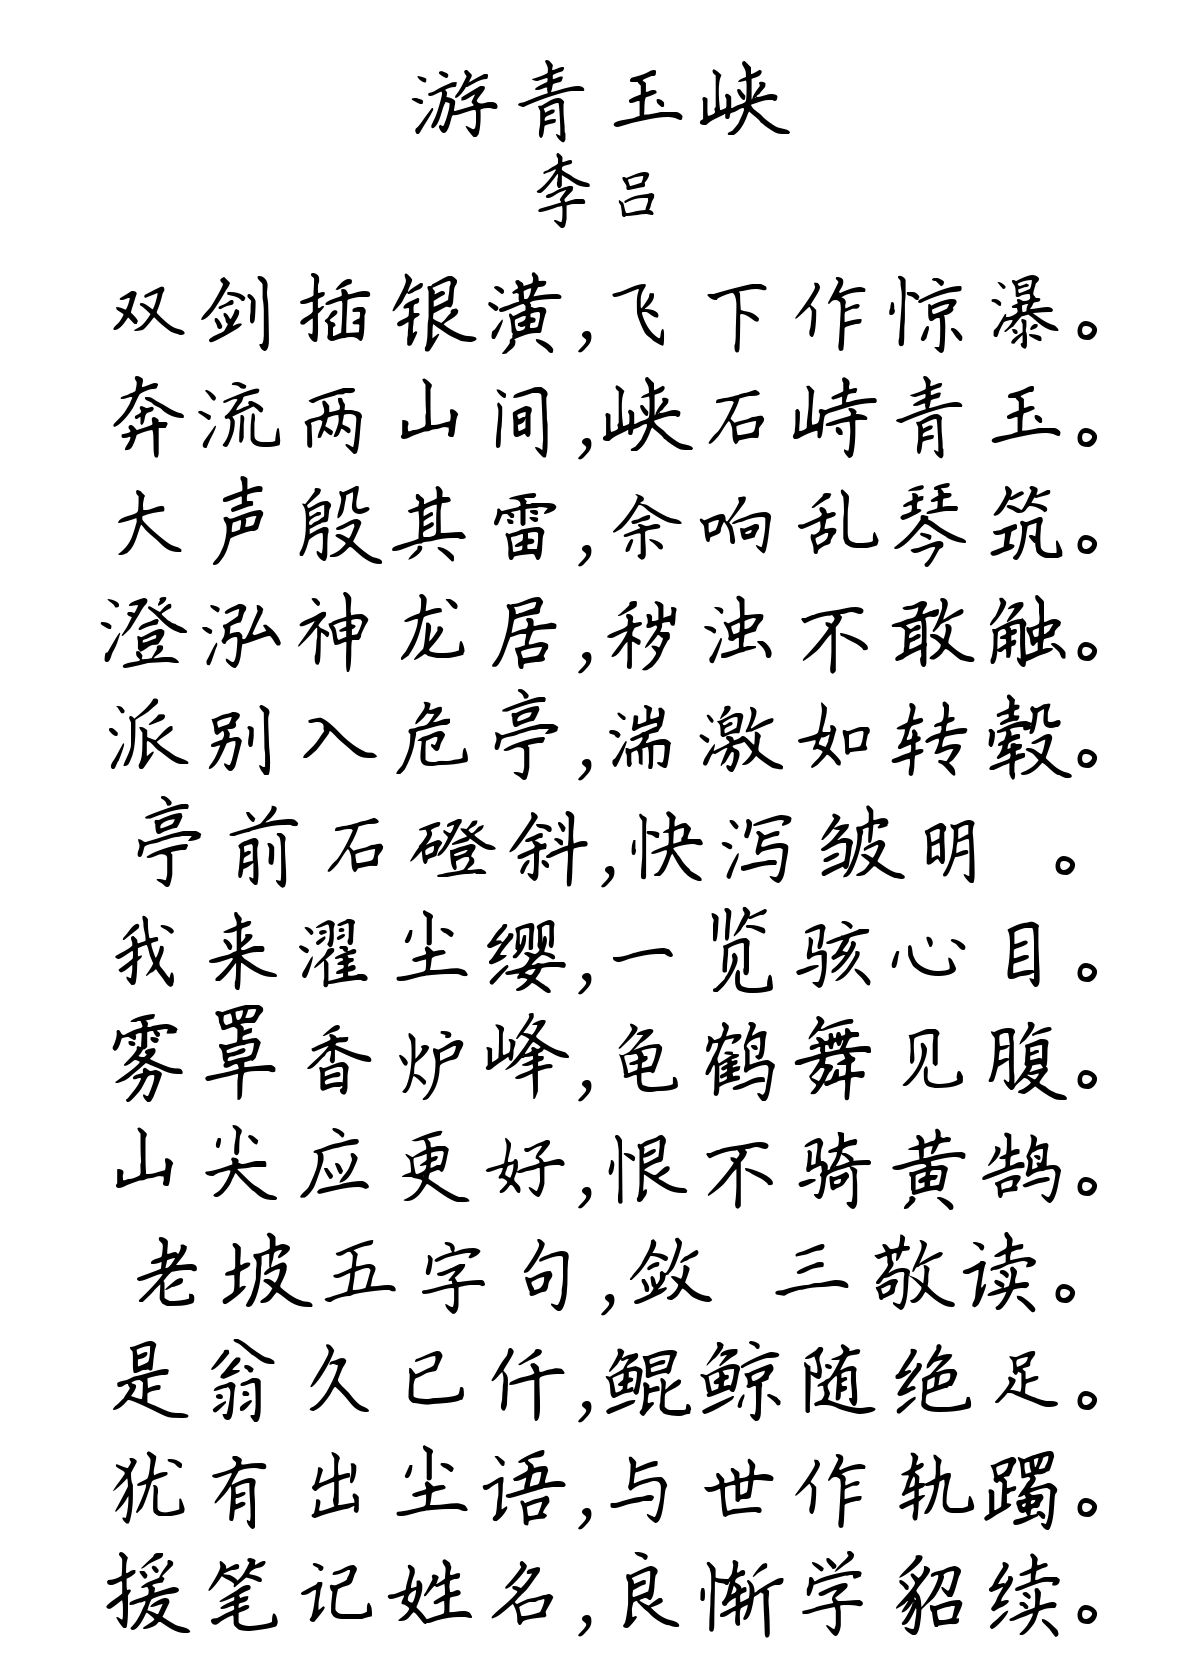 游青玉峡
李吕
双剑插银潢,飞下作惊瀑。
奔流两山间,峡石峙青玉。
大声殷其雷,余响乱琴筑。
澄泓神龙居,秽浊不敢触。
派别入危亭,湍激如转毂。
亭前石磴斜,快泻皱明 。
我来濯尘缨,一览骇心目。
雾罩香炉峰,龟鹤舞见腹。
山尖应更好,恨不骑黄鹄。
老坡五字句,敛 三敬读。
是翁久已仟,鲲鲸随绝足。
犹有出尘语,与世作轨躅。
援笔记姓名,良惭学貂续。